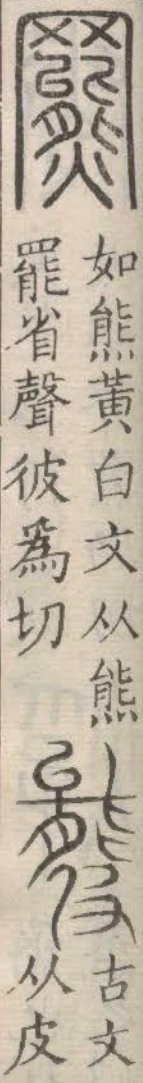 羆
如熊黃白文从熊
罷省聲彼爲切
𤠙
古文
从皮